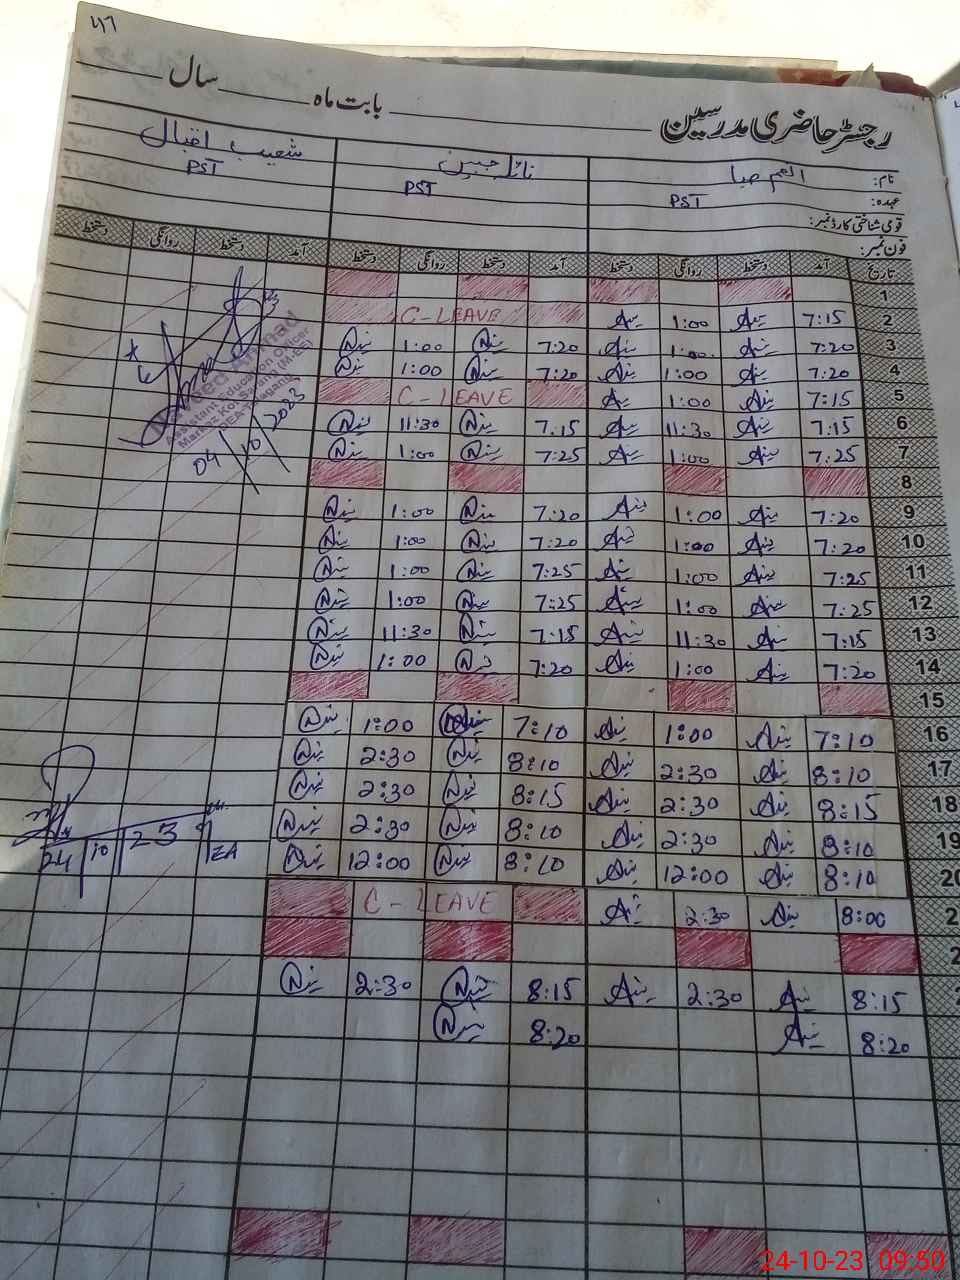 رجسٹر حاضری مدرسین بابت ماہ سال
نام: انعم صبا نائلہ جبین شعیب اقبال
عہدہ: PST PST PST
قومی شناختی کارڈ نمبر:
فون نمبر:
تاریخ آمد دستخط روانگی دستخط آمد دستخط روانگی دستخط آمد دستخط روانگی دستخط
1
2 7:15 1:00 C-LEAVE
3 7:20 1:00 7:20 1:00
4 7:20 1:00 7:20 1:00
5 7:15 1:00 C-LEAVE
6 7:15 11:30 7:15 11:30
7 7:25 1:00 7:25 1:00
8
9 7:20 1:00 7:20 1:00
10 7:20 1:00 7:20 1:00
11 7:25 1:00 7:25 1:00
12 7:25 1:00 7:25 1:00
13 7:15 11:30 7:15 11:30
14 7:20 1:00 7:20 1:00
15
16 7:10 1:00 7:10 1:00
17 8:10 2:30 8:10 2:30
18 8:15 2:30 8:15 2:30
19 8:10 2:30 8:10 2:30
20 8:10 12:00 8:10 12:00
2 8:00 2:30 C-LEAVE
2
8:15 2:30 8:15 2:30
8:20 8:20
Assistant Education Officer
04/10/2023
24/10/23
24-10-23 09:50